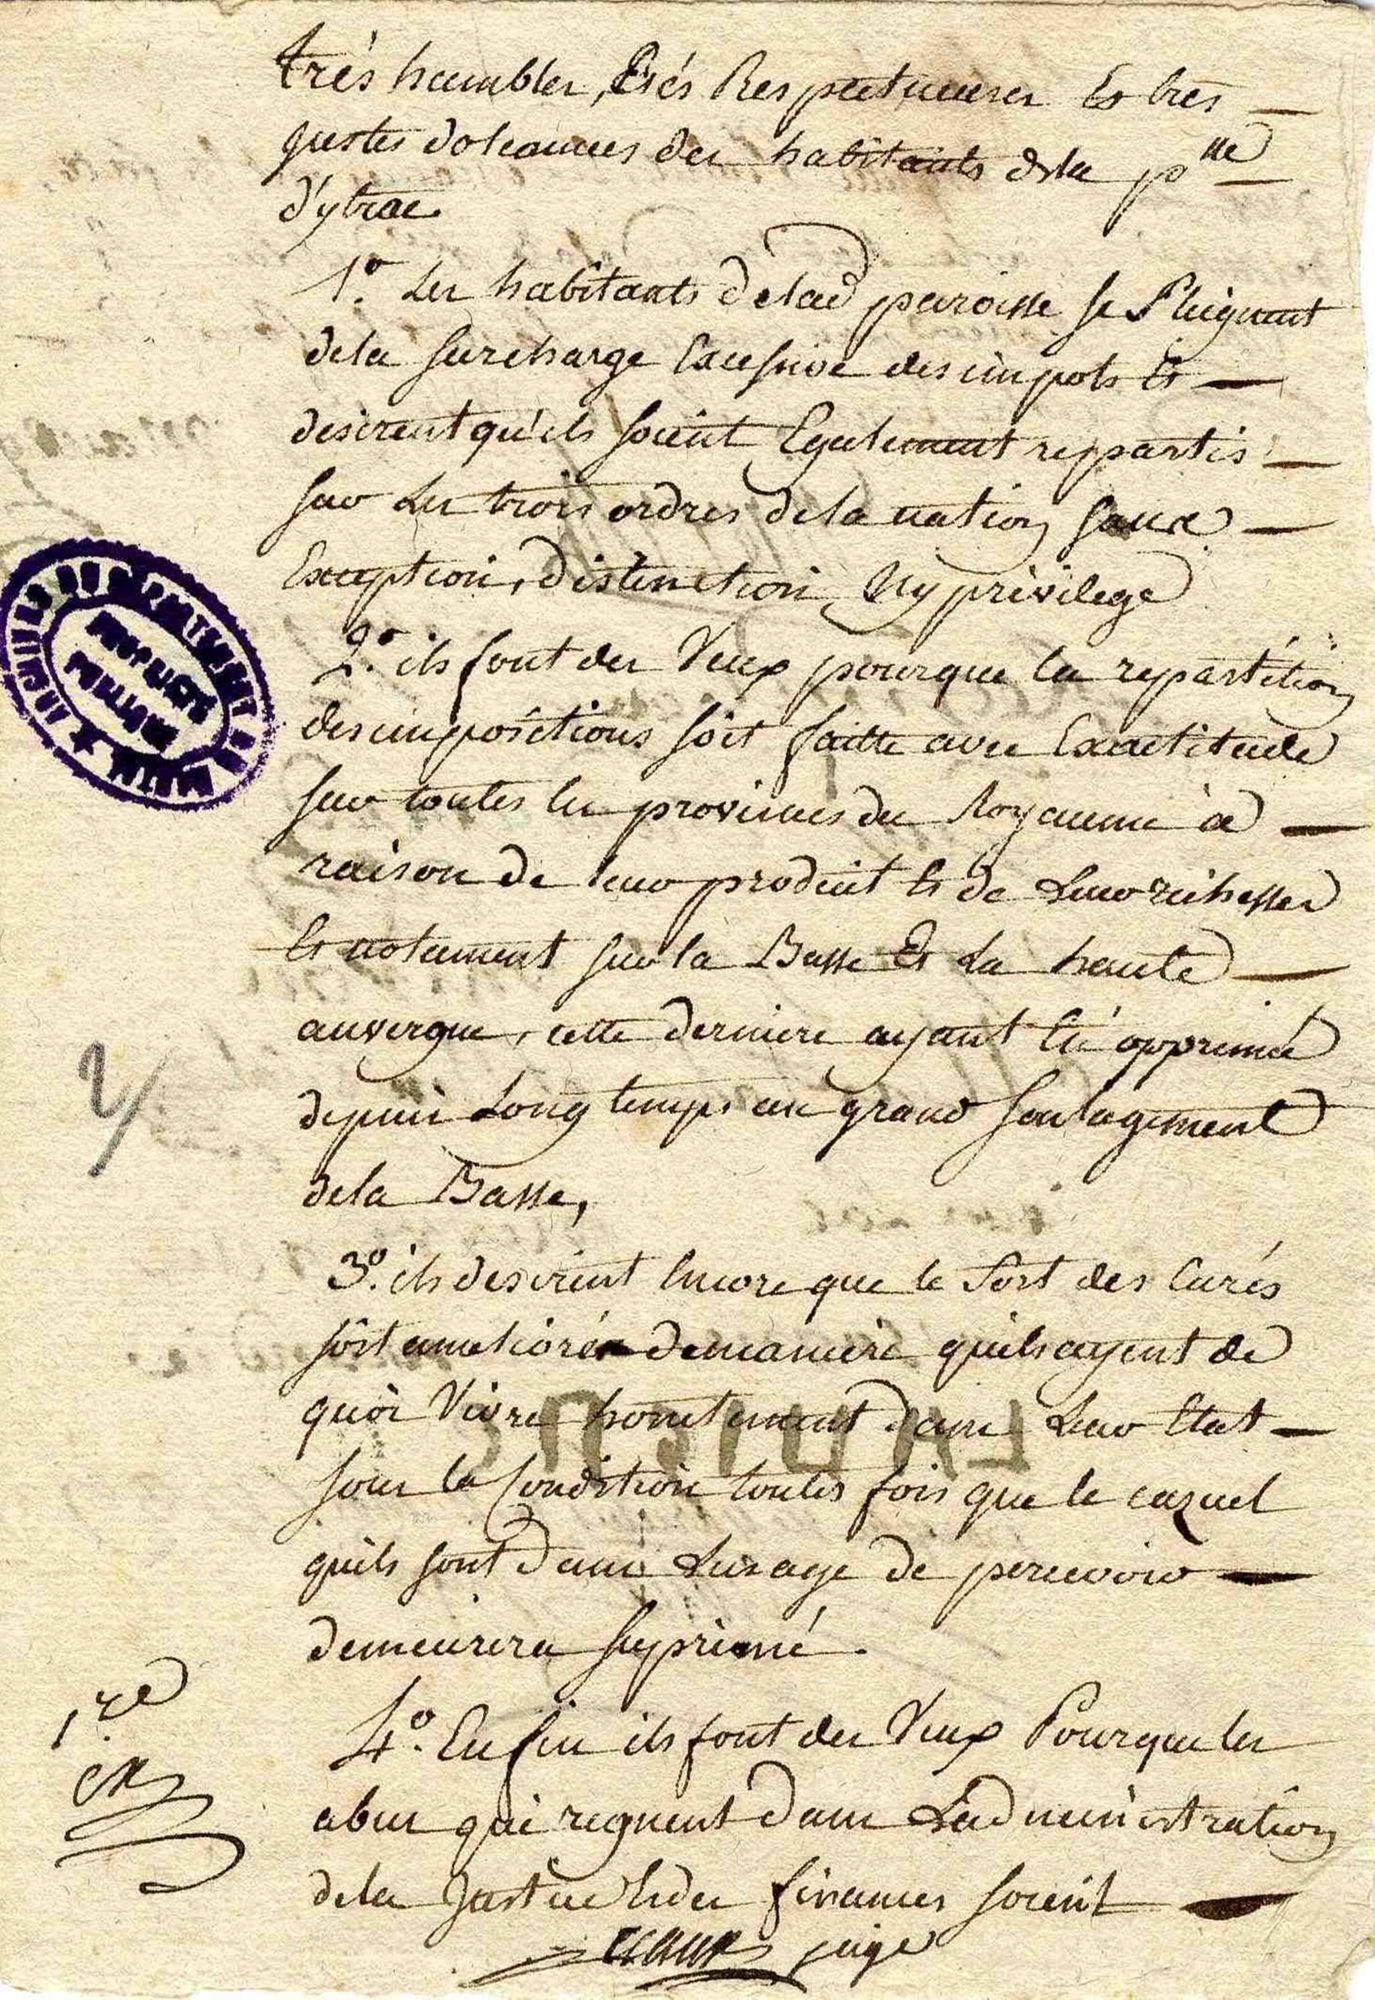 très humbles, trés Respectueuses Et tres
justes doleances des habitants dela p.sse
d'ytrac
1º. Les habitants delad paroisse se Pleignent
dela surcharge Excessive des impots Et
desirent qu'ils soient Egalement repartis
sur Les trois ordres dela nation sans
Exception, distinction, Ny privilege
2º. ils font des Vœux pour que la repartition
des impositions soit faitte avec Exactitude
sur toutes les provinces du Royaume à
raison de leur produit Et de Leur richesses
Et notament sur la Basse Et La haute
auvergne, cette derniere ayant Eté opprimée
depuis Long temps au grand soulagement
dela Basse,
3º. ils desirent Encore que le Sort des Curés
soit amelioré de maniere quils ayent de
quoi Vivre honetement dans Leur Etat
sous la Condition toutes fois que le cazuel
quils sont dans Lusage de percevoir
demeurera suprimé.
4º. Enfin ils font des Vœux Pour que les
abus qui regnent dans L'administration
dela Justice Et des finances soient
juge
1.re
ARCHIVES DU DEPARTEMENT DU CANTAL
2/